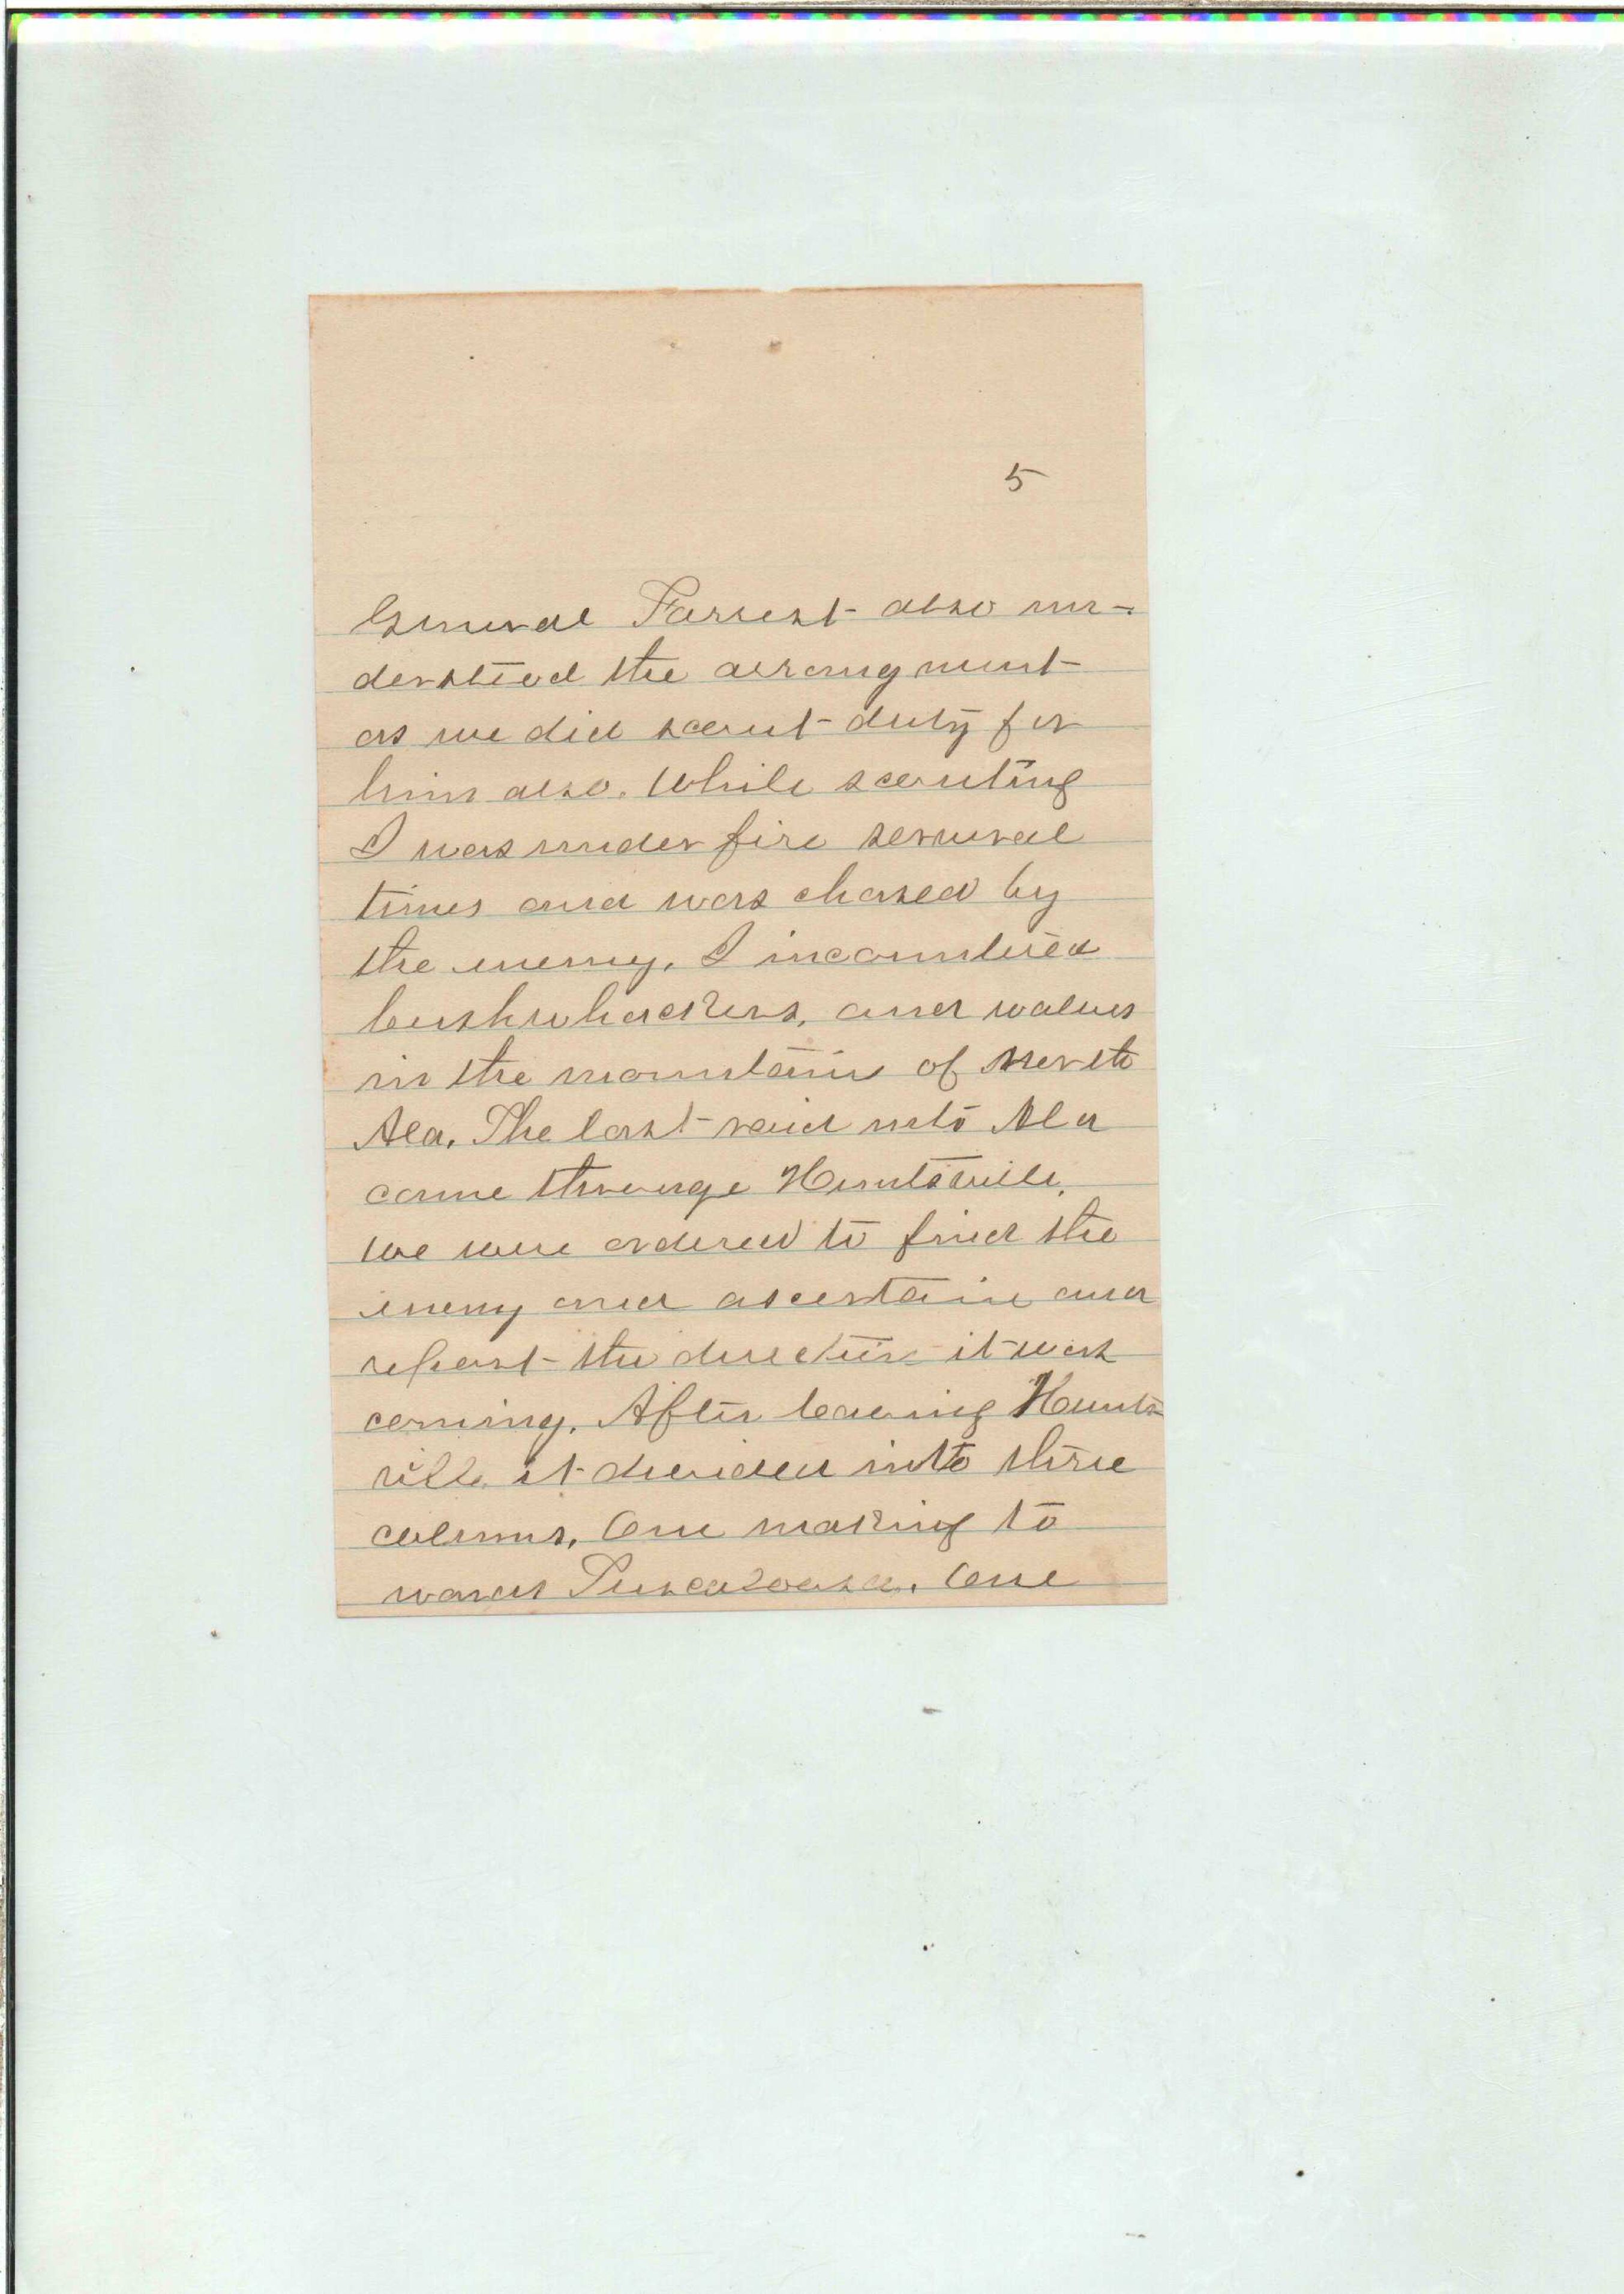 5
General Farrest also un-
derstood the arrangment
as we did scout duty for
him also. While scouting
I was under fire serveral
times and was chased by
the enemy. I incountered
bushwhackers, and wolves
in the mountains of North
Ala. The last raid into Ala
came through Huntsville.
We were ordered to find the
enemy and ascertain and
report the direction it was
coming. After leaving Hunts
ville it divided into three
colums, One making to
wards Tuscaloosa. One